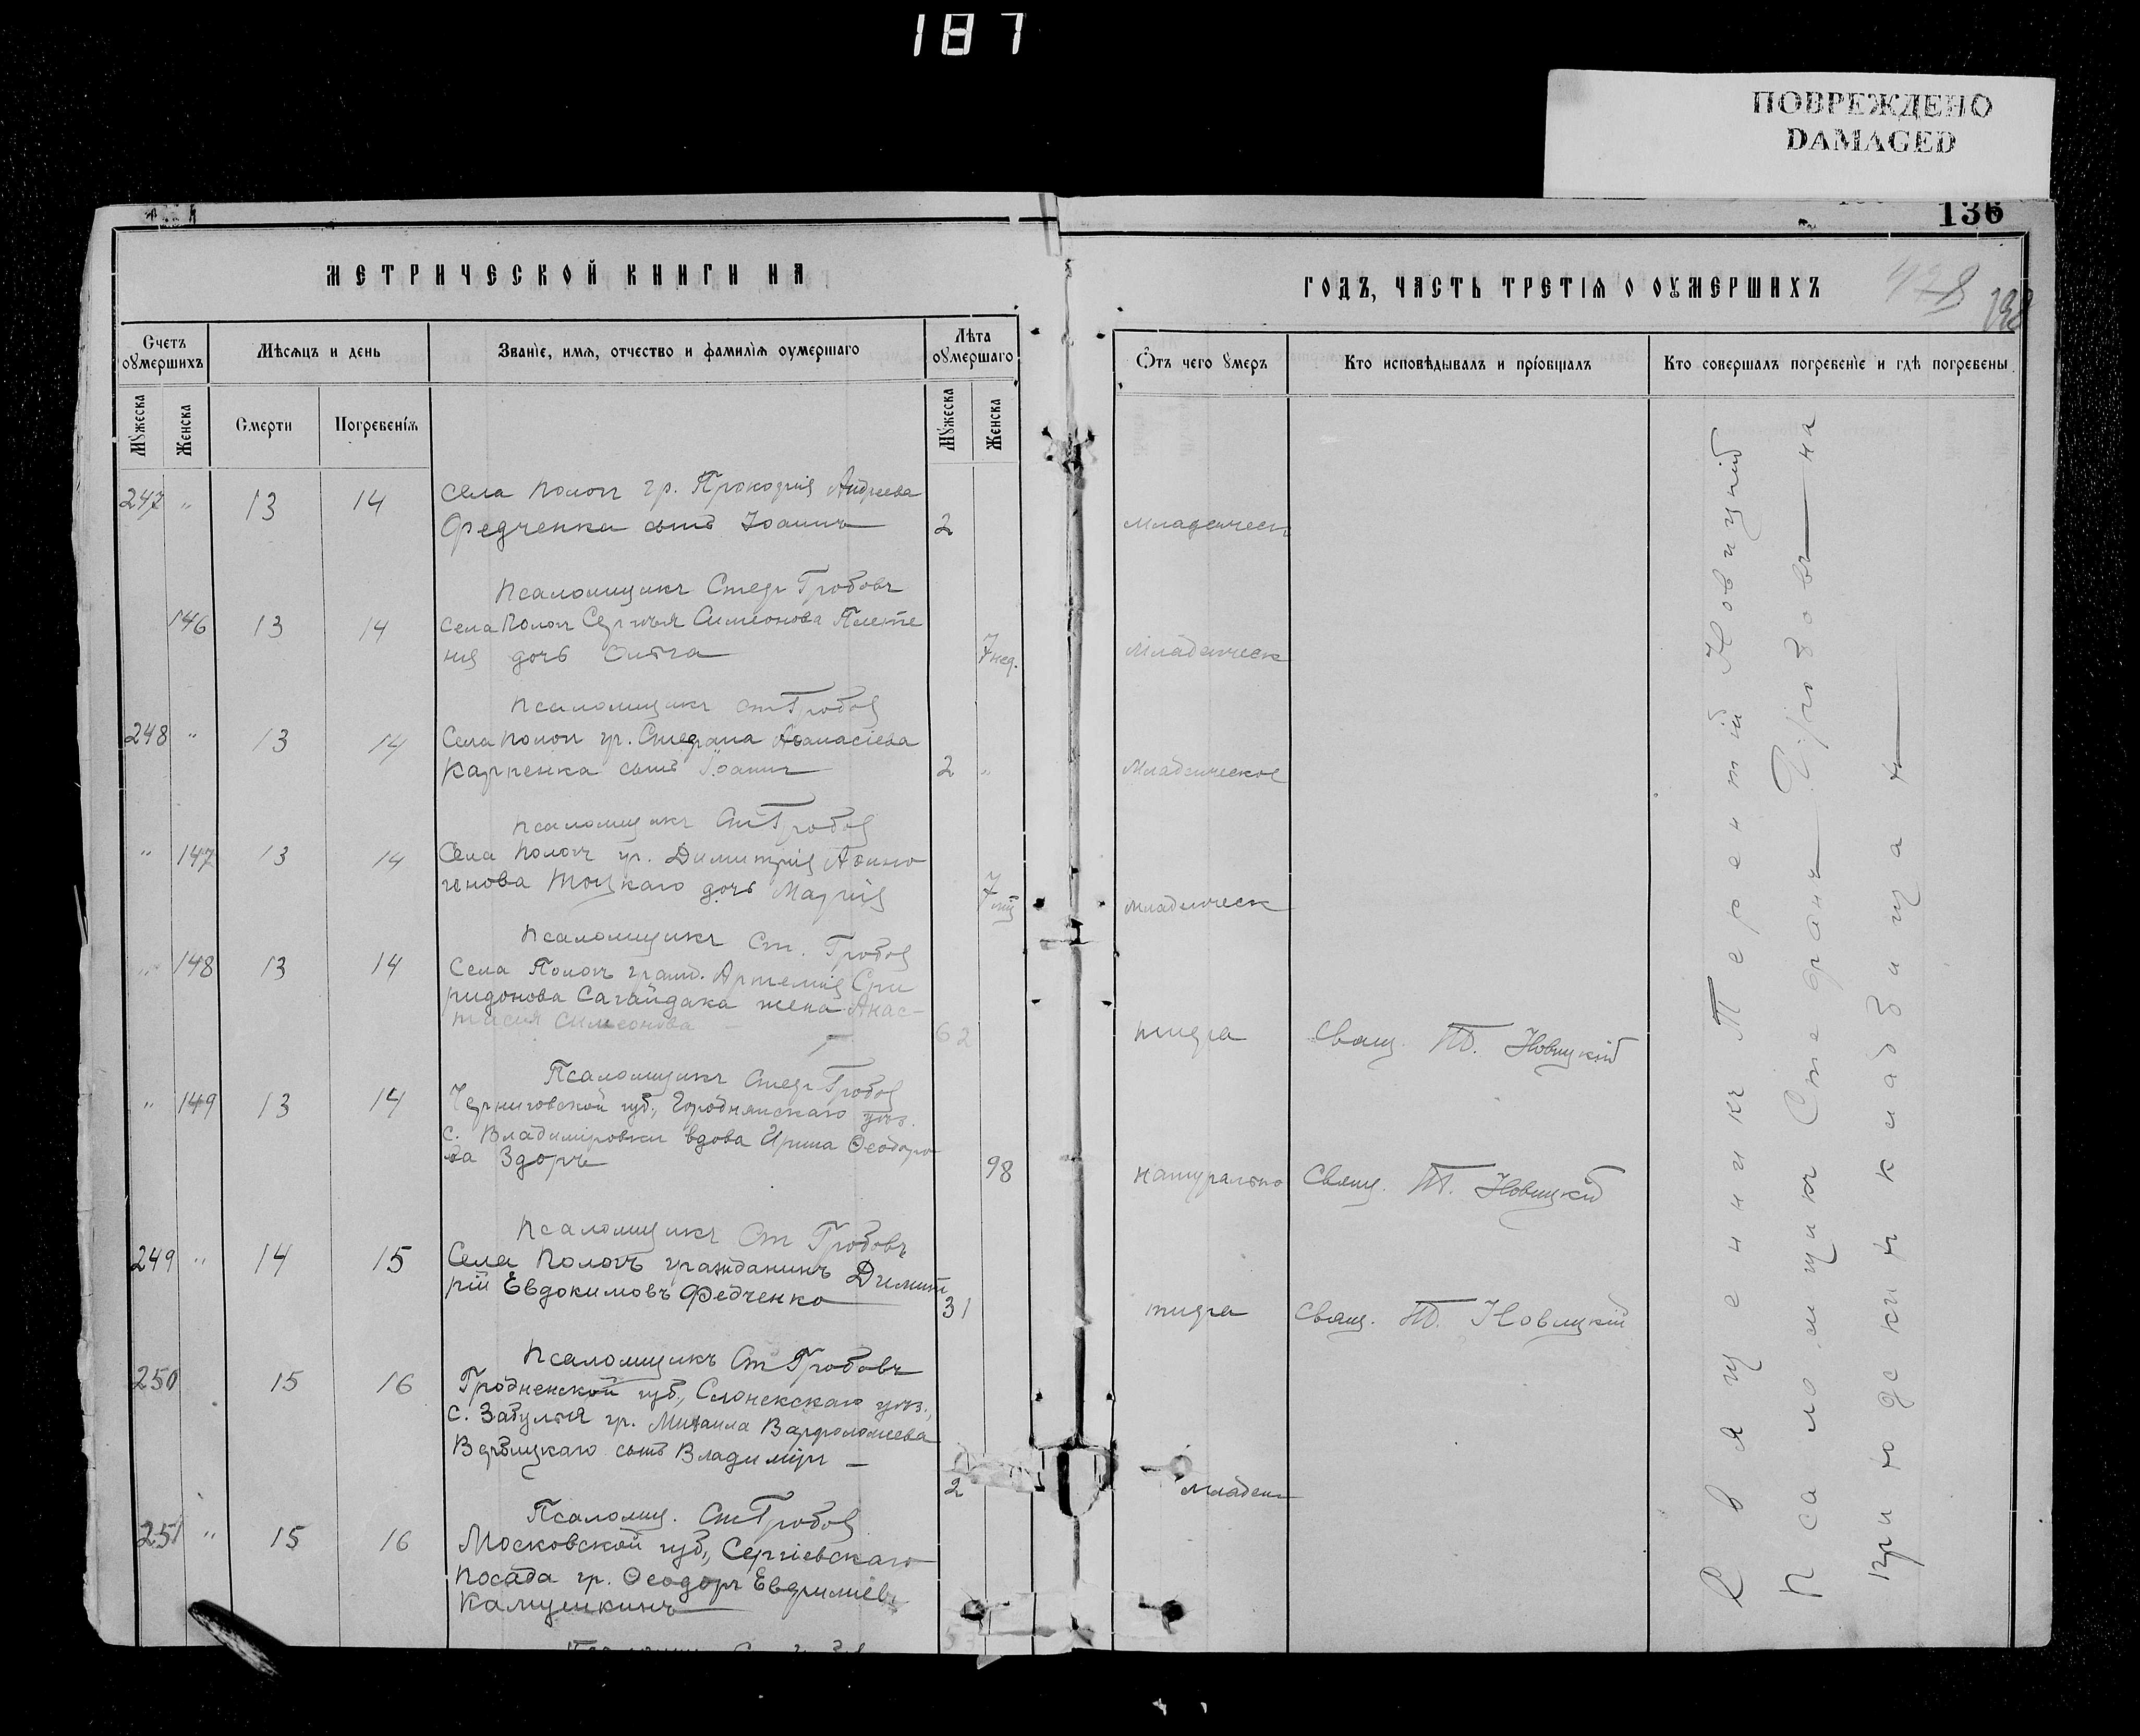 187
ПОВРЕЖДЕНО
DAMAGED
136
МЕТРИЧЕСКОЙ КНИГИ НА
ГОДЪ, ЧАСТЬ ТРЕТІЯ О ОУМЕРШИХЪ
Счетъ оумершихъ
Мѣсяцъ и день
Званіе, имя, отчество и фамилія оумершаго
Лѣта оумершаго
Мужеска
Женска
Смерти
Погребенія
Мужеска
Женска
Ѿтъ чего умеръ
Кто исповѣдывалъ и пріобщалъ
Кто совершалъ погребеніе и гдѣ погребены
247 " 13 14 Села Пологъ гр. Прокофія Андреева
Федченка сынъ Іоаннъ 2 младенческ
Псаломщикъ Стеф Гробовъ
146 13 14 Села Пологъ Сергѣя Симеонова
дочь Ольга 7 нед. Младенческ
Псаломщикъ Ст Гробов
248 " 13 14 Села Пологъ гр. Стефана Аѳанасіева
Карпенка сынъ Іоаннъ 2 " Младенческое
Псаломщикъ Ст Гробов
" 147 13 14 Села Пологъ гр. Димитрія Аѳино
генова Тоцкаго дочь Марія 7 младенческ
Псаломщикъ Ст. Гробов
" 148 13 14 Села Пологъ гражд. Артемія Спи
ридонова Сагайдака жена Анас-
тасия Симеонова 62 тифа Свящ. Т. Новицкій
Псаломщикъ Стеф Гробов
" 149 13 14 Черниговской губ., Городнянскаго уѣз.
с. Владиміровки вдова Ирина Ѳеодоро
ва Здоръ 98 натурально Свящ. Т. Новицкій
Псаломщикъ Ст Гробовъ
249 " 14 15 Села Пологъ гражданинъ Димит
рій Евдокимовъ Федченко 31 тифа Свящ. Т. Новицкій
Псаломщикъ Ст Гробовъ
250 15 16 Гродненской губ., Слонимскаго уѣз.,
с. гр. Михаила Варфоломеева
сынъ Владиміръ 2 Младен
Псаломщ. Ст Гробов
251 " 15 16 Московской губ., Сергіевскаго
посада гр. Ѳеодоръ Евфиміев
Священникъ Терентій Новицкій
Псаломщикъ Стефанъ Гробовъ на
приходскихъ кладбищахъ